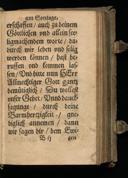 am Sontage.
erschaffen / auch zu deinem
Göttlichen und allein see
ligmachenden wort / da
durch wir leben und selig
werden können / hast be
ruffen und kommen las
sen / Und bitte nun HErr
Allmechtiger Gott gantz
demütiglich / Du wollest
unser Gebet / Und danck
sagunge / durch deine
Barmhertzigkeit / gne
diglich annemen / dann
wir sagen dir / dem Ewi
B ij gen